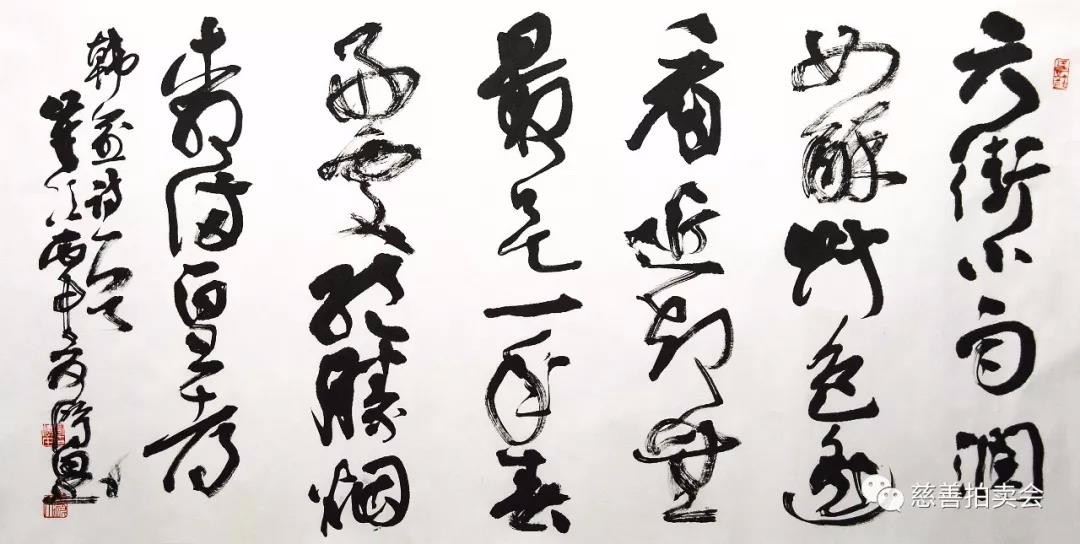 天街小雨润
如酥草色遥
看近却无
最是一年春
好处绝胜烟
柳满皇都
韩愈诗一首
岁次丙申
慈善拍卖会